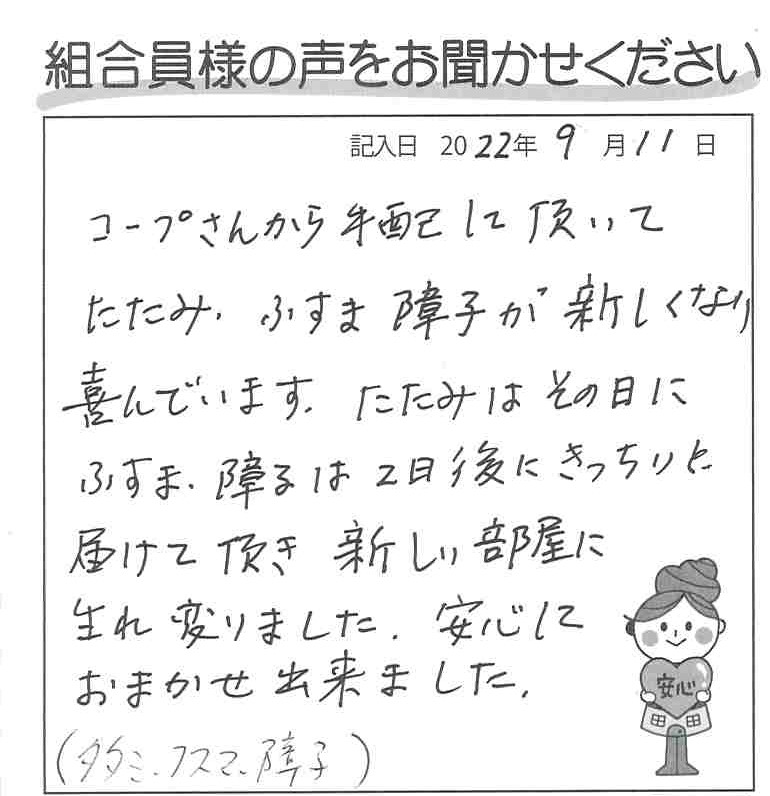 組合員様の声をお聞かせください
記入日 2022年 9月11日
コープさんから手配して頂いて
たたみ、ふすま 障子が新しくなり
喜んでいます。たたみはその日に
ふすま、障子は2日後にきっちりと
届けて頂き 新しい部屋に
生れ変りました。安心して
おまかせ出来ました。
安心
(タタミ、フスマ、障子)